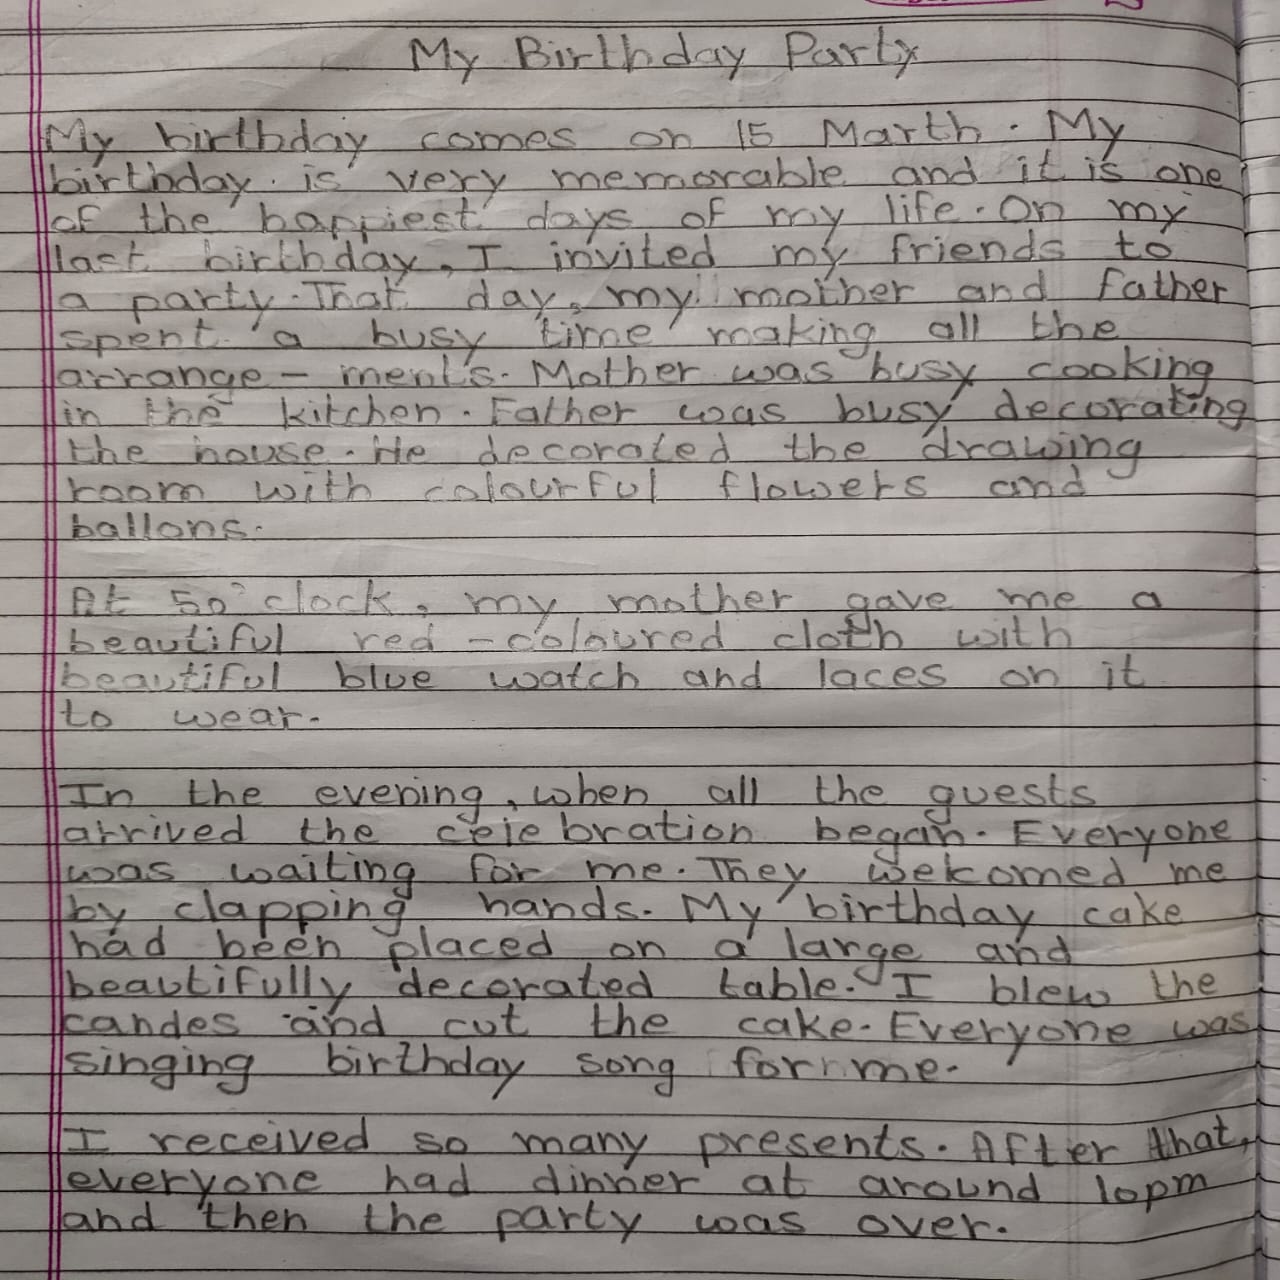 My Birthday Party
My birthday comes on 15 Marth. My
birthday is very memorable and it is one
of the happiest days of my life. On my
last birthday, I invited my friends to
a party. That day, my mother and father
spent a busy time making all the
arrange - ments. Mother was busy cooking
in the kitchen. Father was busy decorating
the house. He decorated the drawing
room with colourful flowers and
ballons.
At 5o'clock, my mother gave me a
beautiful red -coloured cloth with
beautiful blue watch and laces on it
to wear.
In the evening, when all the guests
arrived the celebration began. Everyone
was waiting for me. They welcomed me
by clapping hands. My birthday cake
had been placed on a large and
beautifully decorated table. I blew the
candes and cut the cake. Everyone was
singing birthday song for me.
I received so many presents. After that,
everyone had dinner at around 10pm
and then the party was over.